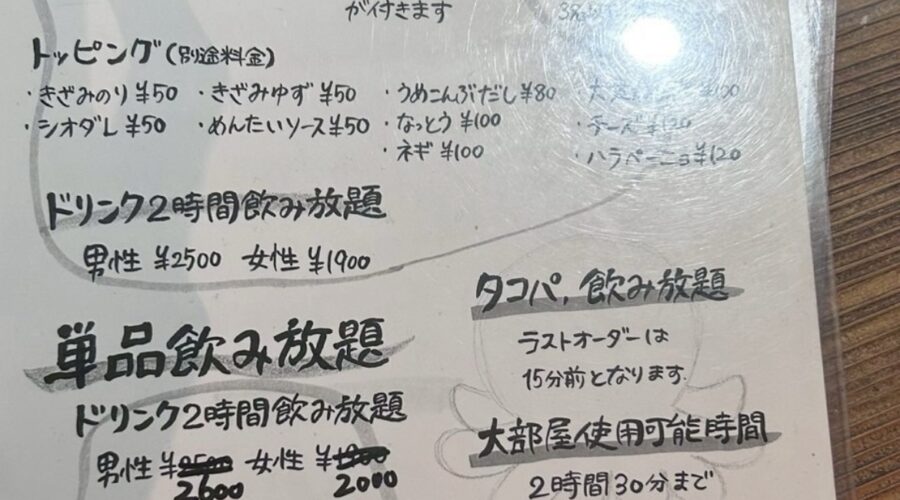 が付きます
トッピング(別途料金)
・きざみのり ¥50 ・きざみゆず ¥50 ・うめこんぶだし ¥80
・シオダレ ¥50 ・めんたいソース ¥50 ・なっとう ¥100 ・チーズ ¥120
・ネギ ¥100 ・ハラペーニョ ¥120
ドリンク2時間飲み放題
男性 ¥2500 女性 ¥1900
タコパ,飲み放題
ラストオーダーは
15分前となります.
単品飲み放題
ドリンク2時間飲み放題
男性 ¥2500 2600 女性 ¥1900 2000
大部屋使用可能時間
2時間30分まで